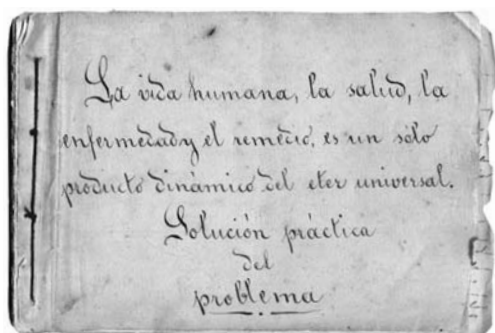 La vida humana, la salud, la
enfermedad y el remedio, es un sólo
producto dinámico del eter universal.
Solución práctica
del
problema